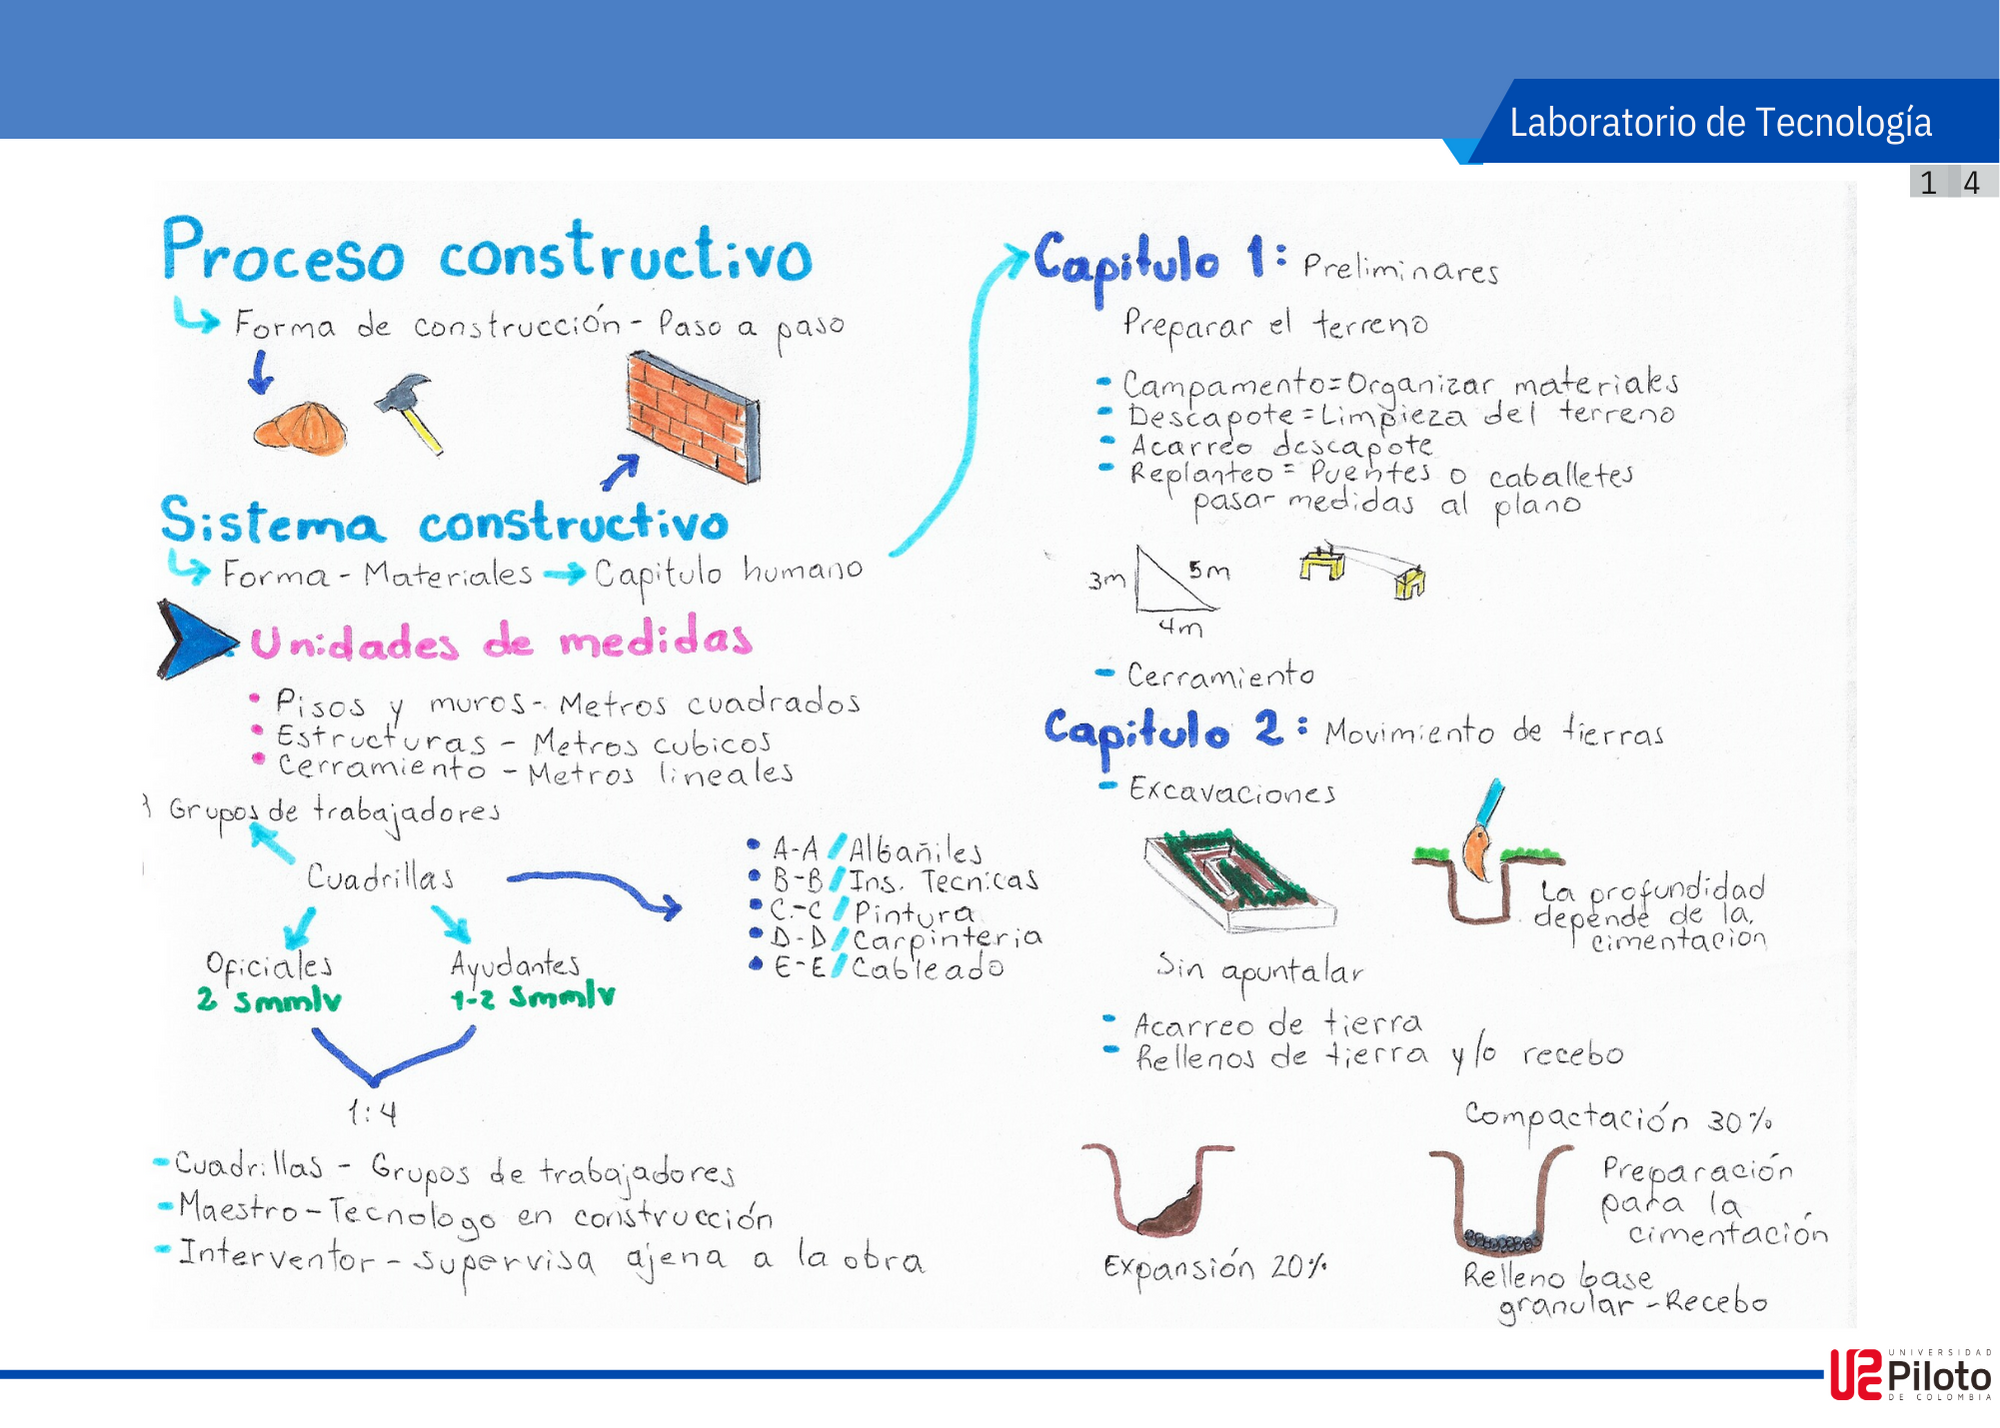 Laboratorio de Tecnología
1 4
Proceso constructivo
Forma de construcción - Paso a paso
Sistema constructivo
Forma - Materiales → Capitulo humano
Unidades de medidas
• Pisos y muros - Metros cuadrados
• Estructuras - Metros cubicos
• Cerramiento - Metros lineales
Grupos de trabajadores
Cuadrillas
Oficiales
2 Smmlv
Ayudantes
1-2 Smmlv
1:4
• A-A / Albañiles
• B-B / Ins. Tecnicas
• C-C / Pintura
• D-D / Carpinteria
• E-E / Cableado
- Cuadrillas - Grupos de trabajadores
- Maestro - Tecnologo en construcción
- Interventor - supervisa ajena a la obra
Capitulo 1: Preliminares
Preparar el terreno
- Campamento = Organizar materiales
- Descapote = Limpieza del terreno
- Acarreo descapote
- Replanteo = Puentes o caballetes
pasar medidas al plano
3m
5m
4m
- Cerramiento
Capitulo 2: Movimiento de tierras
- Excavaciones
La profundidad
depende de la
cimentacion
Sin apuntalar
- Acarreo de tierra
- Rellenos de tierra y/o recebo
Compactación 30%
Preparación
para la
cimentación
Expansión 20%
Relleno base
granular - Recebo
UNIVERSIDAD
Piloto
DE COLOMBIA